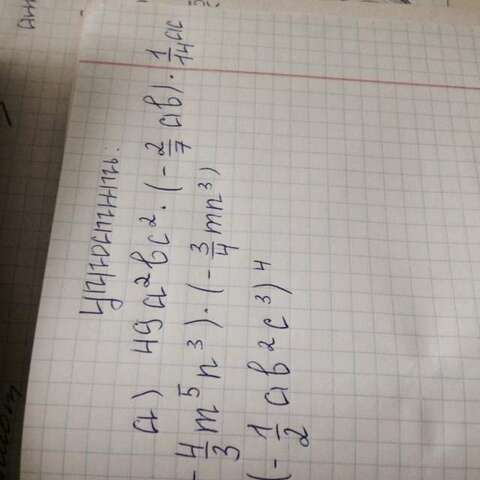 упростить:
а) 49a²bc² · (-2/7 ab) · 1/14 ac
-4/3 m⁵n³) · (-3/4 mn³)
(-1/2 ab²c³)⁴